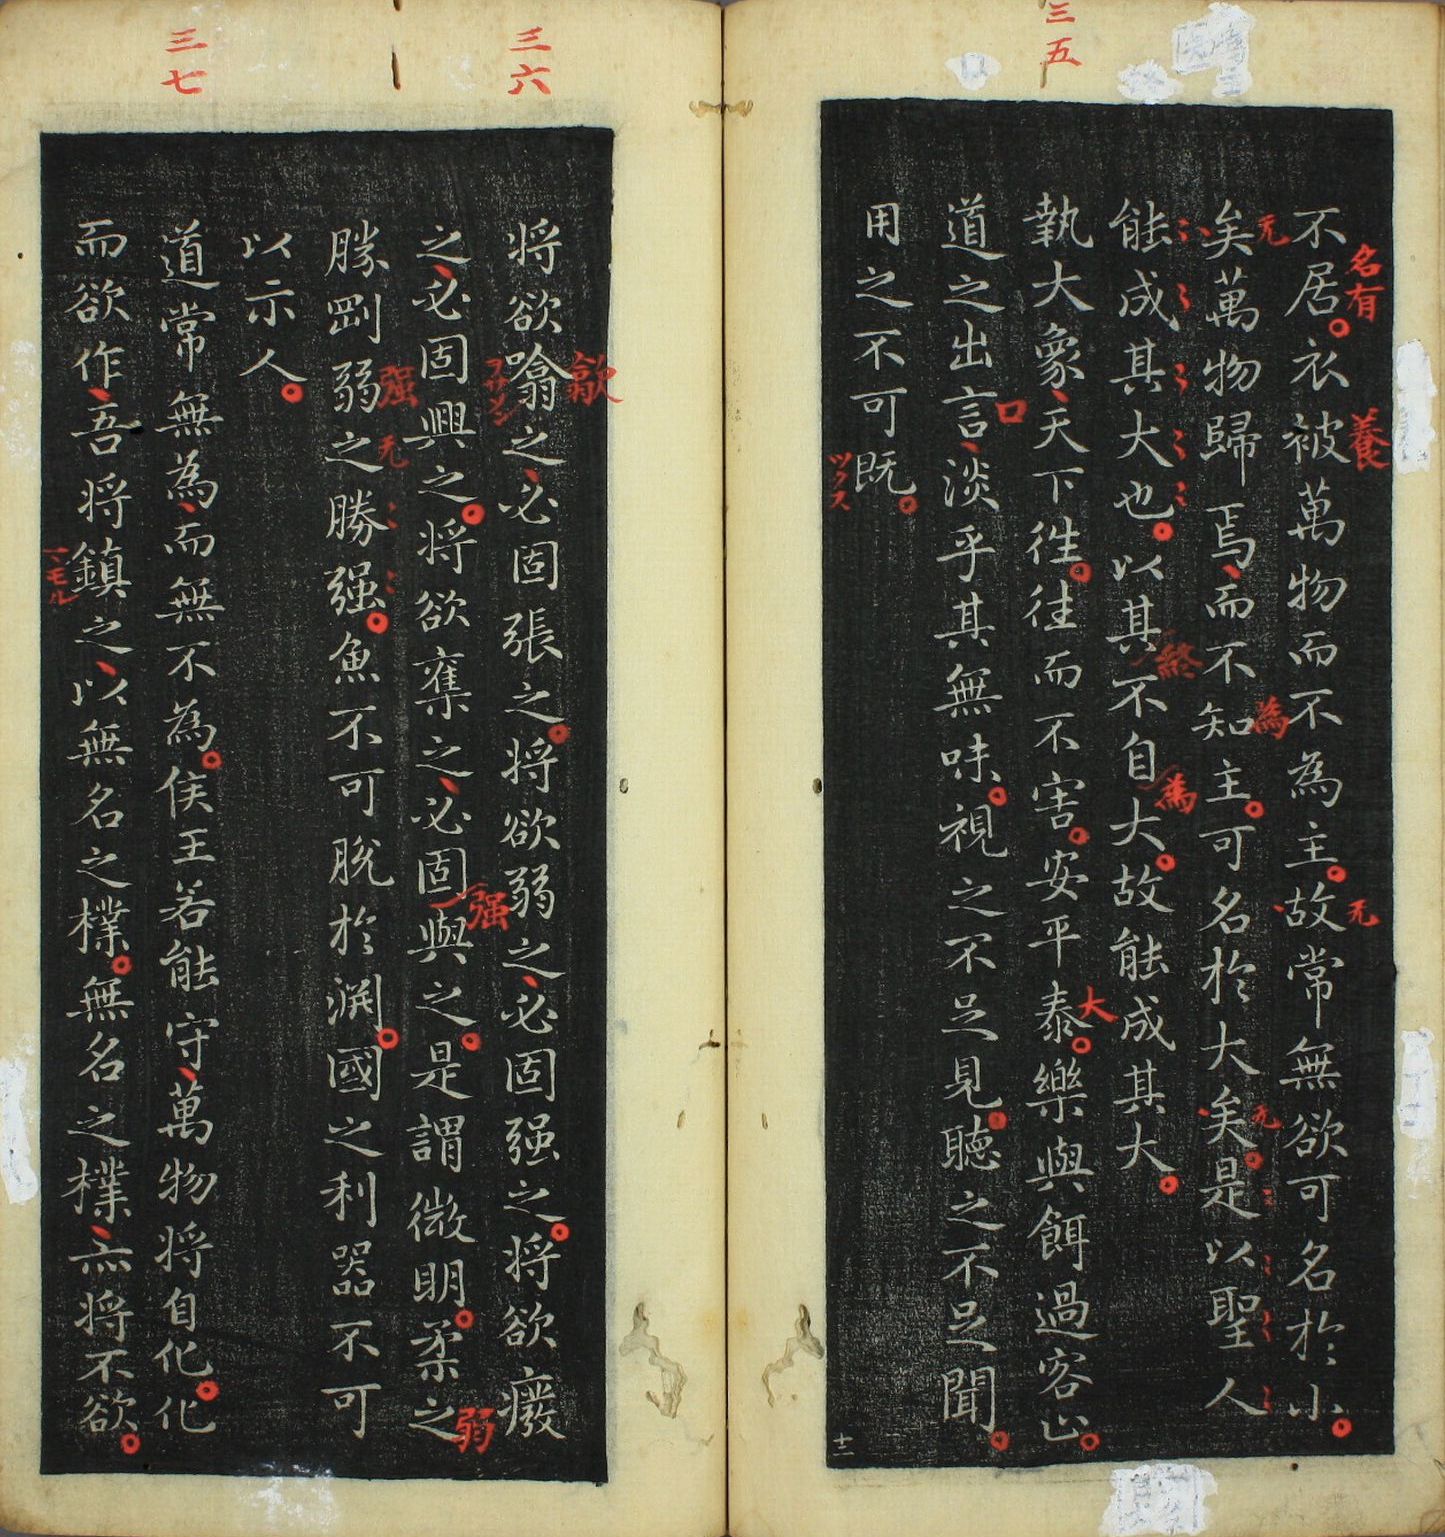 三五
名有
養
无
不居衣被萬物而不為主故常無欲可名於小
无
為
无
矣萬物歸焉而不知主可名於大矣是以聖人
終
為
能成其大也以其不自大故能成其大
大
執大象天下往往而不害安平泰樂與餌過客止
口
道之出言淡乎其無味視之不足見聽之不足聞
用之不可既
ツクス
十二
三六
歙
将欲噏之必固張之将欲弱之必固强之将欲癈
强
弱
之必固興之将欲奪之必固與之是謂微明柔之
强
无
勝剛弱之勝强魚不可脫於渊國之利器不可
以示人
三七
道常無為而無不為侯王若能守萬物将自化化
而欲作吾将鎮之以無名之樸無名之樸亦将不欲
マモル